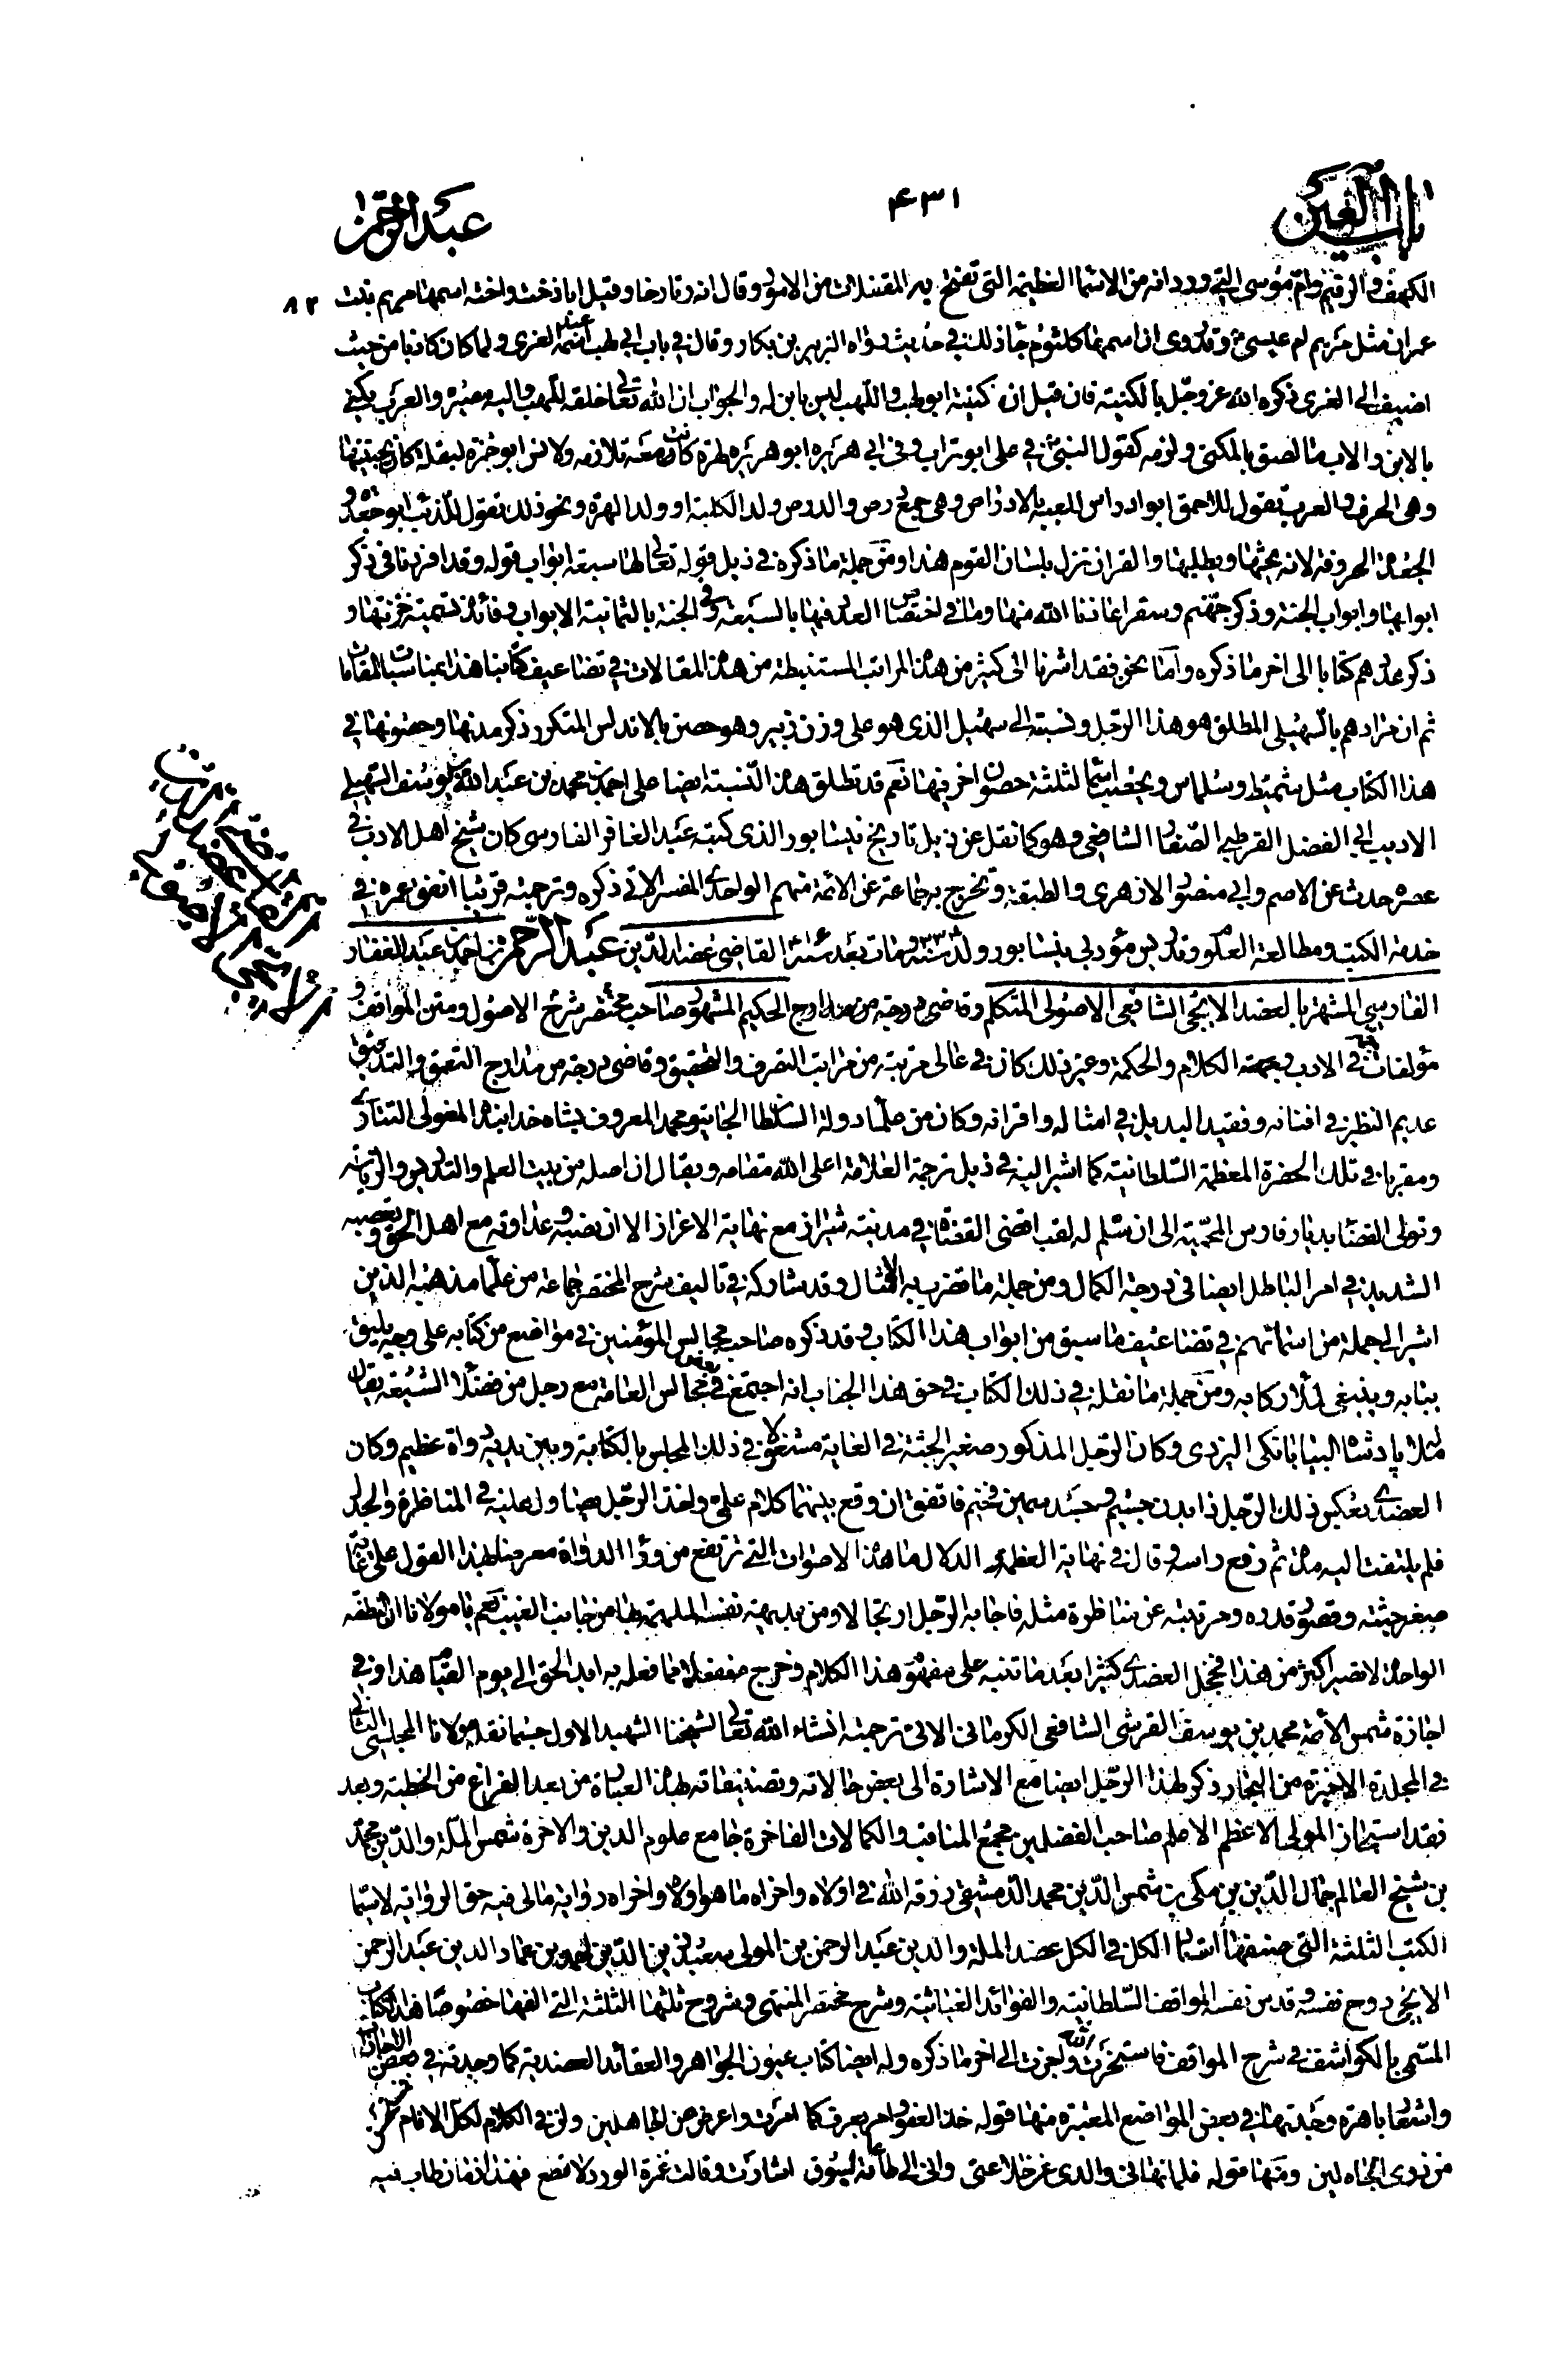 باب العين
۴۳۱
عبد الرحمن
الكهف والرقيم وام موسى التي ورد انه من الاسماء العظيمة التي تفتح به المقفلات من الامور وقال انه وقارخا وقيل اباذخت واخته اسمها مريم بنت
عمران مثل مريم ام عيسى وقد روى ان اسمها كلثوم جاء ذلك في حديث رواه الزبير بن بكار وقال في باب ابي لهب اسمه عبد العزى ولما كان كانبا من حيث
اضيف الى العزى ذكره الله عز وجل بالكنية فان قيل ان كنيته ابو لهب واللهب ليس بابن له والجواب ان الله تعالى خلقه للهب واليه مصيره والعرب يكنى
بالابن والاب ما لصق بالمكنى ولزمه كقول النبي في على ابو تراب وفي ابي هريره ابو هريره لهرة كانت معه تلازمه ولانس ابو حمزة لبقلة كان يجتنيها
وهي الحرف والعرب تقول للاحمق ابو ادراس للعبه بالادراص وهي جمع درص والدرص ولد الكلبة او ولد الهرة ونحو ذلك تقول للذئب ابو جعدة و
الجعدة الحروفة لانه يحبها ويطلبها والقران نزل بلسان القوم هذا ومن جملة ما ذكره في ذيل قوله تعالى لها سبعة ابواب قوله وقد افردنا في ذكر
ابوابها وابواب الجنة وذكر جهنم وسقر اعاذنا الله منها وما في اختصاص العدد فيها بالسبعة وفي الجنة بالثمانية الابواب وفائدة تسمية خزنتها و
ذكر عددهم كتابا الى اخر ما ذكره واما نحن فقد اشرنا الى كثير من هذه المراتب المستنبطة من هذه المقالات في تضاعيف كتابنا هذا بمناسبات المقامات
ثم ان مرادهم بالسهيلى المطلق هو هذا الرجل ونسبته الى سهيل الذي هو على وزن زبير وهو حصن بالاندلس المتكرر ذكر مدنها وحصونها في
هذا الكتاب مثل شميط وسلماس ويحصب اسماء لثلثة حصون اخر فيها نعم قد تطلق هذه النسبة ايضا على احمد بن محمد بن عبد الله بن يوسف السهيلي
الاديب ابي الفضل القرطبي الصفار الشافعي وهو كما نقل عن ذيل تاريخ نيسابور الذي كتبه عبد الغافر الفارسي كان شيخ اهل الادب في
عصره حدث عن الاصم وابي منصور الازهرى والطبقة وتخرج به جماعة من الائمة منهم الواحدى المفسر الاتي ذكره وترجمته قريبا انفق عمره في
خدمة الكتب ومطالعة العلوم وتدريس مؤدبي نيسابور ولد سنة ومات بعد سنة القاضى عضد الدين عبد الرحمن بن احمد بن عبد الغفار
الفارسى المشتهر بالعضد الايجى الشافعى الاصولى المتكلم وقاضى درجة من مدارج الحكيم المشهور صاحب مختصر شرح الاصول ومتن المواقف و
مؤلفات في الادب جمة الكلام والحكمة وغير ذلك كان في عالى مرتبة من مراتب التصرف والتحقيق وقاضى درجة من مدارج التعمق والتدقيق
عديم النظير في افنانه وفقيد البديل في امثاله واقرانه وكان من علماء دولة السلطان الجايتو محمد المعروف بشاه خدابنده المغولى التتارى
ومقربا في تلك الحضرة المعظمة السلطانية كما اشير اليه في ذيل ترجمة العلامة اعلى الله مقامه ويقال ان اصله من بيت العلم والتدريس والرياسة
وتولى القضاء بديار فارس المحمية الى ان سلم له لقب اقضى القضاة في مدينة شيراز مع نهاية الاعزاز الا ان نصبه وعداوته مع اهل الحق وتعصبه
الشديد في امر الباطل ايضا في درجة الكمال ومن جملة ما تضرب به الامثال وقد شاركه في تاليف شرح المختصر جماعة من علماء مذهبه الذين
اشير الى جملة من اسمائهم في تضاعيف ما سبق من ابواب هذا الكتاب وقد ذكره صاحب مجالس المؤمنين في مواضع من كتابه على وجه يليق
ببابه وينبغى لمثل ركابه ومن جملة ما نقله في ذلك الكتاب في حق هذا الجناب انه اجتمع في بعض مجالس العامة مع رجل من فضلاء الشيعة يقال
لملا پادشاه اليزدى وكان الرجل المذكور صغير الجثة في الغاية مشغولا في ذلك المجلس بالكتابة وبين يديه دواة عظيم وكان
العضدى بعكس ذلك الرجل ذا بدن جسيم وجسد سمين فخيم فاتفق ان وقع بينهما كلام علمى واخذ الرجل يصاول عليه في المناظرة والجدل
فلم يلتفت اليه مدة ثم رفع راسه وقال في نهاية العظمة والدلال ما هذه الاصوات التى ترتفع من وراء الدواة معرضا بهذا القول على غاية
صغر جثته وقصور قدره ومرتبته عن مناظرة مثله فاجابه الرجل ارتجالا ومن بديهة نفسه الملهمة بها من جانب الغيب نعم يا مولانا ان النطفة
الواحدة لا تصير اكبر من هذا فخجل العضدى كثيرا بعد ما تنبه على مفهوم هذا الكلام وخرج منفعلا مما فعل به ابد الحق الى يوم القيام هذا وفي
اجازة شمس الائمة محمد بن يوسف القرشى الشافعى الكرمانى الاتى ترجمته انشاء الله تعالى لشيخنا الشهيد الاول حسبما نقله مولانا المجلسى الثانى
في المجلدة الاخيرة من البحار ذكر لهذا الرجل ايضا مع الاشارة الى بعض حالاته وتصنيفاته بهذه العبارة من بعد الفراغ من الخطبة وبعد
فقد استجاز المولى الاعظم الاعلم صاحب الفضلين مجمع المناقب والكمالات الفاخرة جامع علوم الدين والاخرة شمس الملة والدين محمد
بن شيخ العالم جمال الدين بن مكى بن شمس الدين محمد الدمشقى رزقه الله في اولاه واخراه ما هو اولاه واخراه رواية مالى فيه حق الرواية لاسيما
الكتب الثلثة التى صنفها استاد الكل في الكل عضد الملة والدين عبد الرحمن بن المولى سعيد زين الدين احمد بن عماد الدين عبد الرحمن
الايجى روح نفسه وقدس نفسه المواقف السلطانية والفوائد الغياثية وشرح مختصر المنتهى وشروح ثلثها الثلثة التى الفها خصوصا هذا الكتاب
المسمى بالكواشف في شرح المواقف فاستخرت الله واجزت الى اخر ما ذكره وله ايضا كتاب عيون الجواهر والعقائد العضدية كما وجدته في بعض الاجازات
واشعار باهرة وجدتها في بعض المواضع المعتبرة منها قوله خذ العفو وامر بعرف كما امرت واعرض عن الجاهلين ولن في الكلام لكل الانام فمستحسن
من ذوى الجاه لين ومنها قوله فلما نهانى والدى عن خلاعتى وانى الى طاعته ليسوق اشارت وقالت غمزة الورد لا تضع فهذا زمان طاب فيه